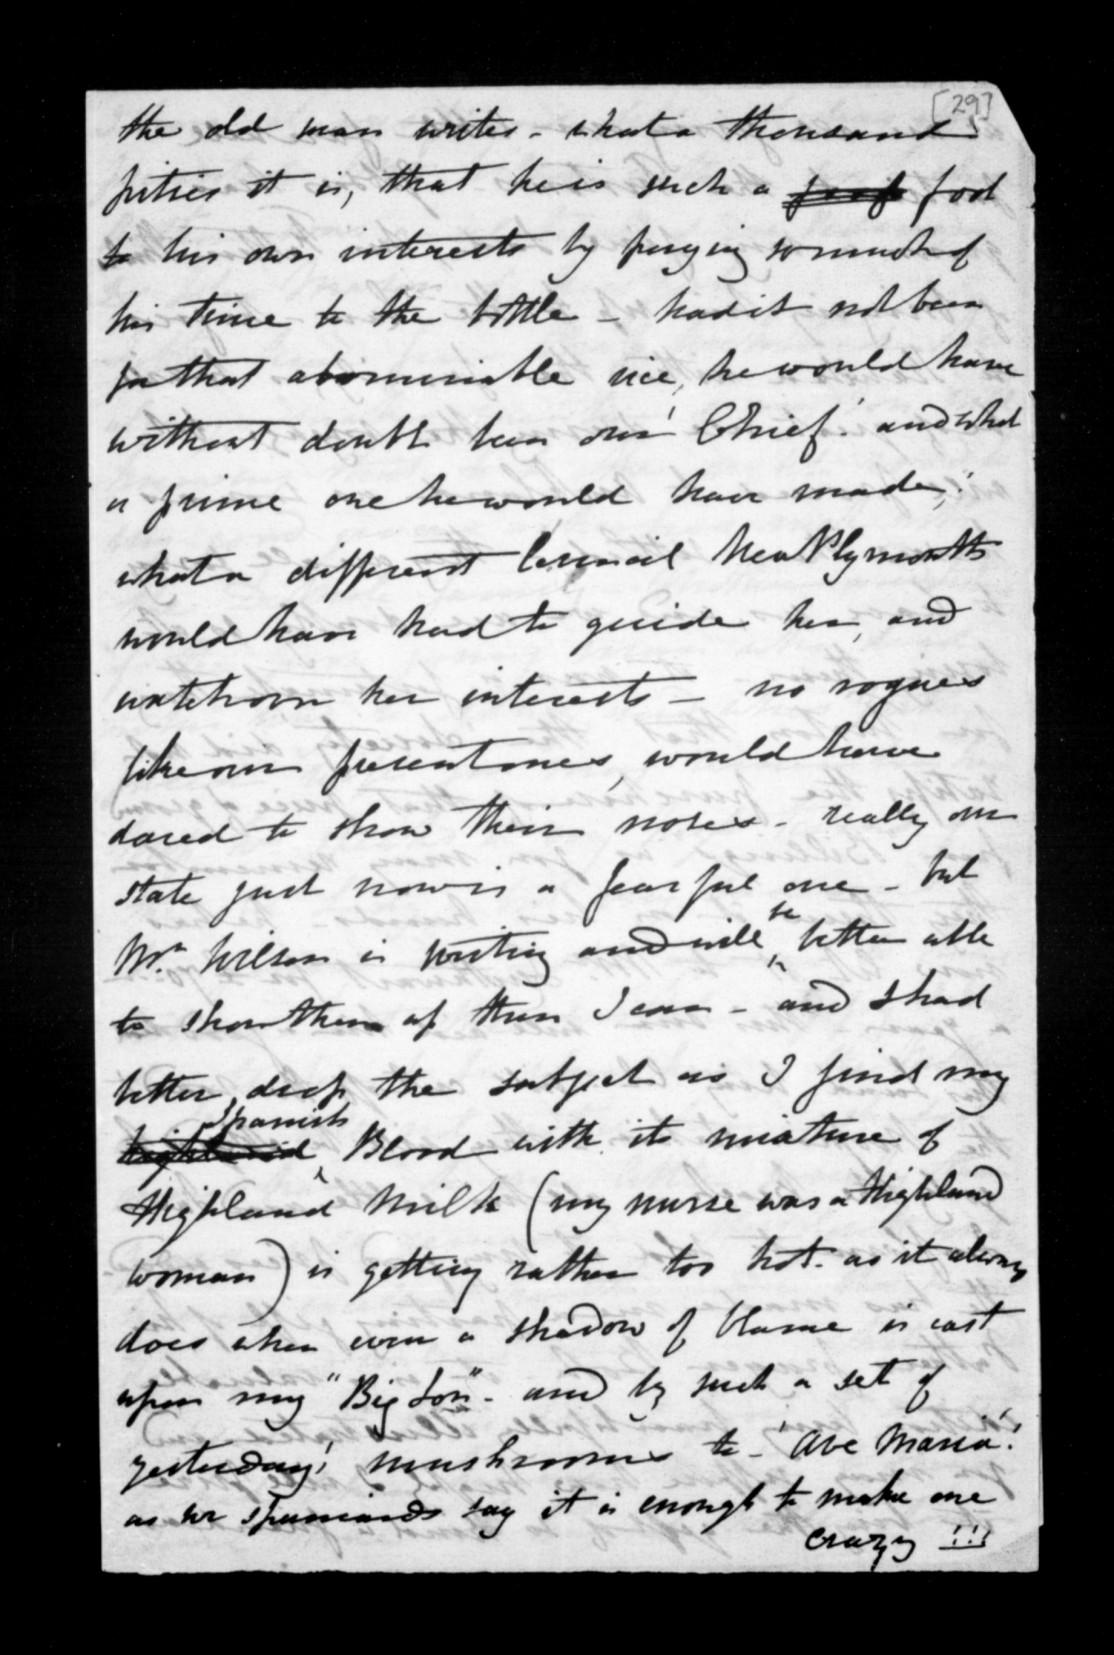 [29]
the old man writes - what a thousand
pities it is, that he is such a fool
to his own interests by paying so much of
his time to the bottle - had it not been
for that abominable vice, he would have
without doubt been our 'Chief' and what
a prime one he would have made,!
what a different Council New Plymouth
would have had to guide her, and
watch over her interests - no rogues
like our present ones, would have
dared to show their noses - really our
state just now is a fearful one - but
Mr. Wilson is writing and will be better able
to show them up than I can - and I had
better drop the subject as I find my
highland Spanish Blood with its mixture of
Highland Milk (my nurse was a Highland
woman) is getting rather too hot - as it always
does when even a shadow of blame is cast
upon my "Big Son" - and by such a set of
yesterday's mushrooms to - 'Ave Maria'!
as we Spaniards say it is enough to make one
crazy !!!